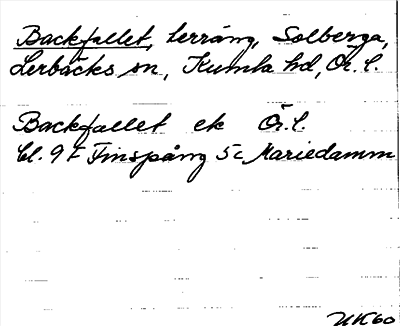 Backfallet, terräng, Solberga,
Lerbäcks sn, Kumla hd, Ör. l.
Backfallet ek Ör. l.
bl. 9 F Finspång 5 c Mariedamm
NK60